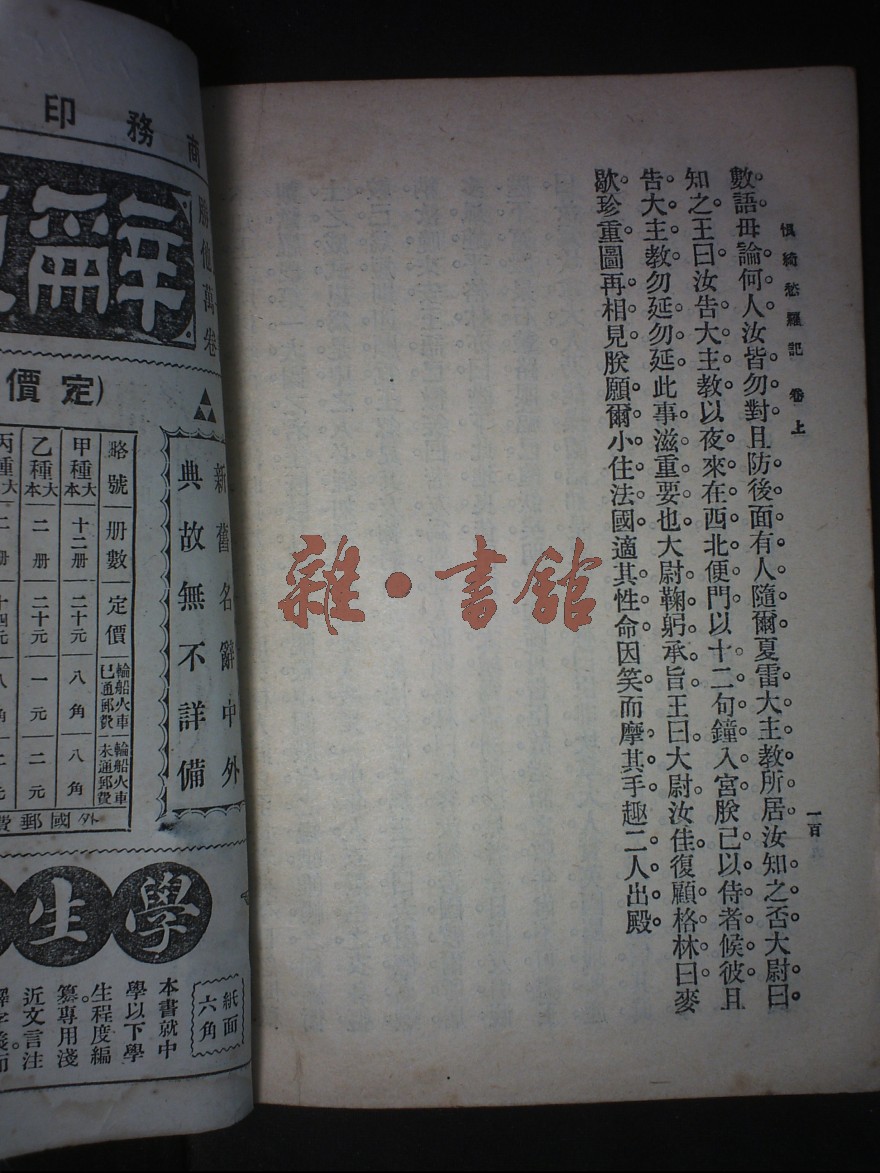 慎綺愁羅記 卷上
數語毋論何人汝皆勿對且防後面有人隨爾夏雷大主教所居汝知之否大尉曰。
知之王曰汝告大主教以夜來在西北便門以十二句鐘入宮朕已以侍者候彼且
告大主教勿延勿延此事滋重要也大尉鞠躬承旨王曰大尉汝佳復顧格林曰麥
歇珍重圖再相見朕願爾小住法國適其性命因笑而摩其手趣二人出殿
一百
雜·書館
商務印
辭
定價)
略號 册數 定價 輪船火車已通郵費 輪船火車未通郵費
甲種大本 十二册 二十元 八角 八角
乙種大本 二册 二十元 一元 二元
丙種大
外國郵費
新舊名辭中外
典故無不詳備
學生
紙面
六角
本書就中
學以下學
生程度編
纂專用淺
近文言注